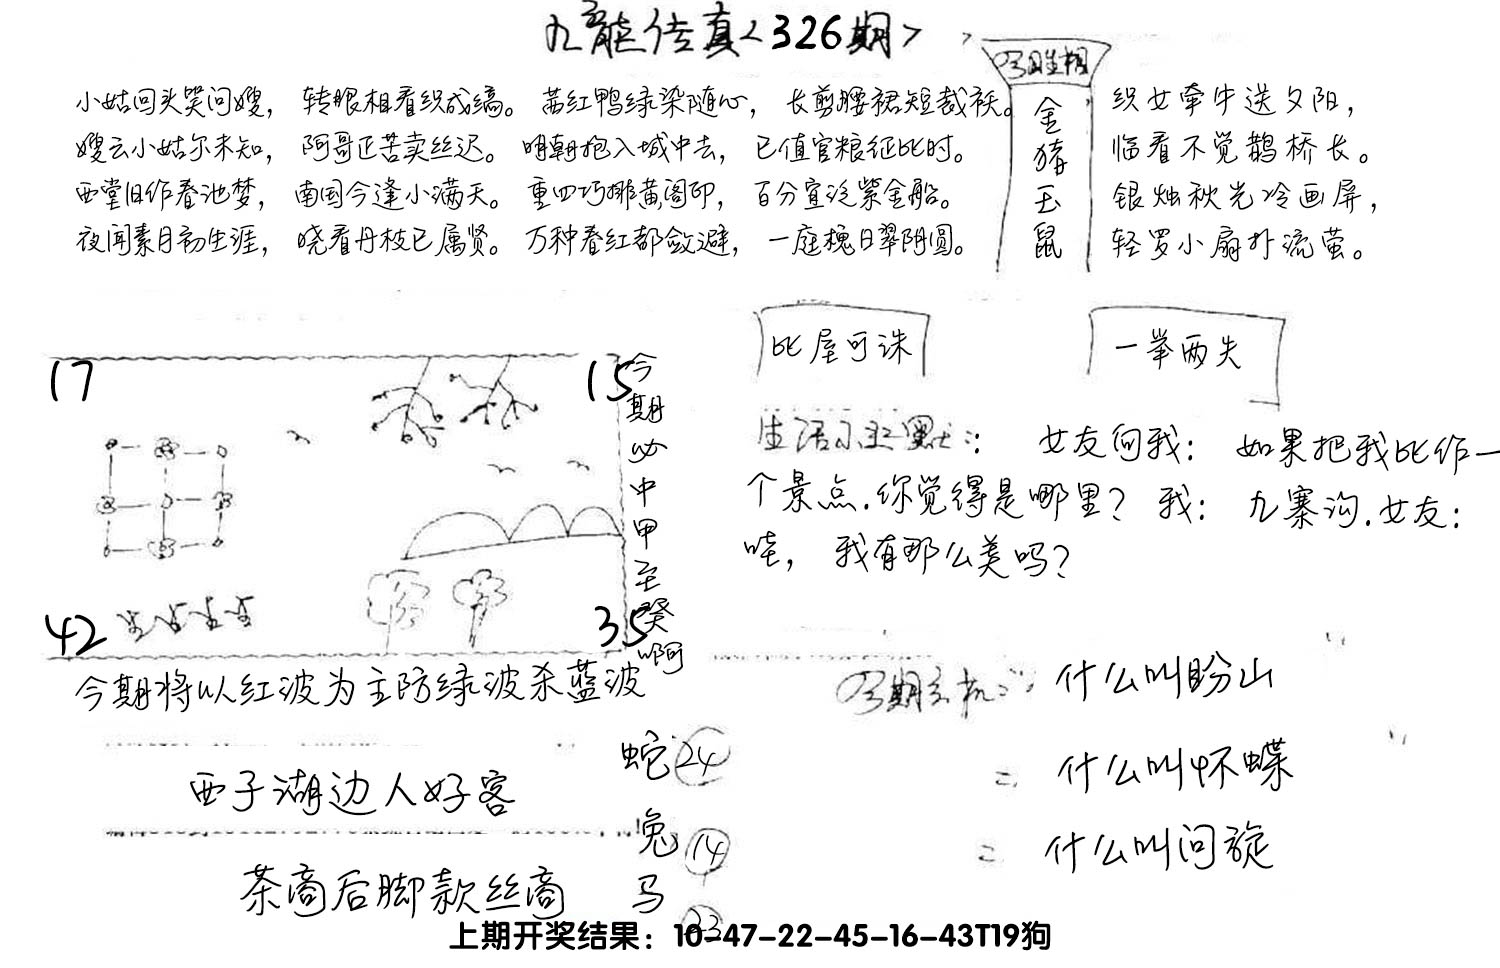 九龙传真<326期>
小姑回头笑问嫂，转眼相看织成缟。茜红鸭绿染随心，长剪腰裙短裁袄。
嫂云小姑尔未知，阿哥正苦卖丝迟。明朝抱入城中去，已值官粮征比时。
西堂旧作春池梦，南国今逢小满天。重四巧排黄阁印，百分宜泛紫金船。
夜闻素月初生涯，晓看丹枝已属贤。万种春红都敛避，一庭槐日翠阴圆。
今日生相
金猪玉鼠
织女牵牛送夕阳，
临看不觉鹊桥长。
银烛秋光冷画屏，
轻罗小扇扑流萤。
比屋可诛
一举两失
17
15
42
35
今期必中甲至癸啊
今期将以红波为主防绿波杀蓝波
生活小幽默：女友问我：如果把我比作一
个景点.你觉得是哪里？我：九寨沟.女友：
哇，我有那么美吗？
今期玄机：什么叫盼山
=. 什么叫怀蝶
= 什么叫问旋
西子湖边人好客
茶商后脚款丝商
蛇 24
兔 14
马 23
上期开奖结果：10-47-22-45-16-43T19狗